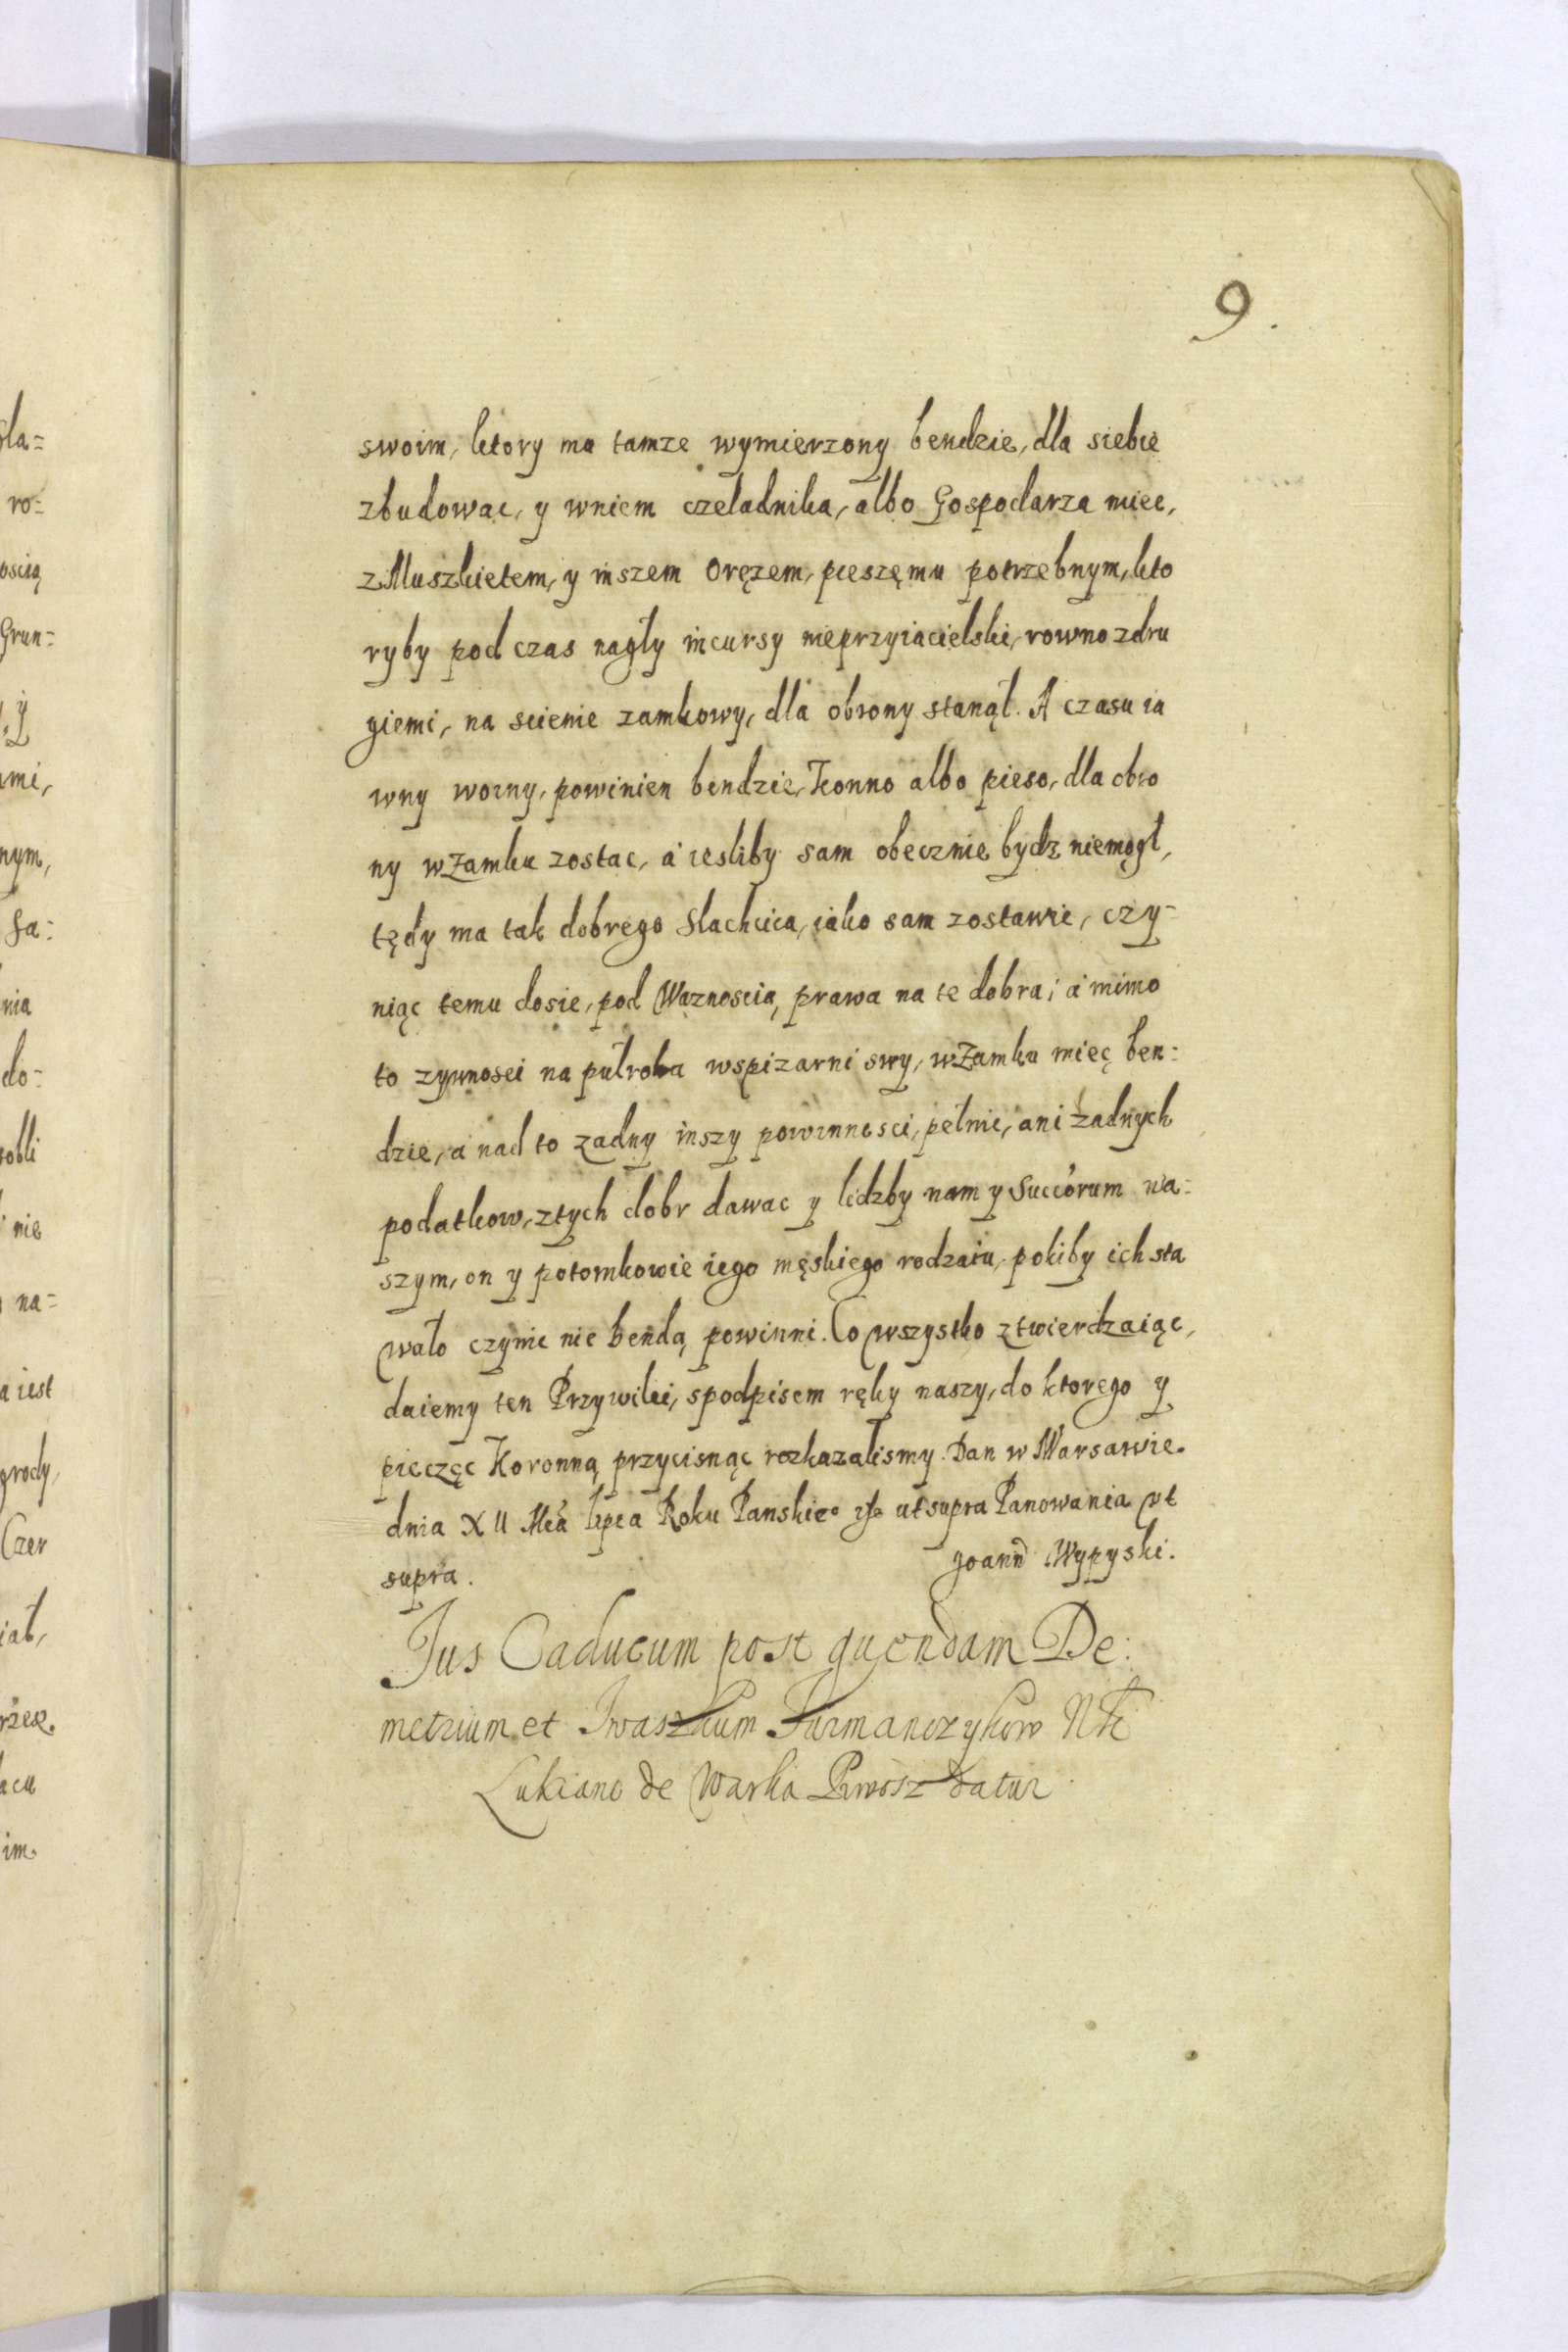 9.
swoim, ktory mu tamze wymierzony bendzie, dla siebie
zbudowac, y wniem czeladnika, albo Gospodarza miec,
z Muszkietem, y inszem Oręzem, pieszęmu potrzebnym, kto
ryby pod czas nagły incursy nieprzyiacielski, rowno zdru
giemi, na scienie zamkowy, dla obrony stanął. A czasu ia
wny woiny, powinien bendzie, Konno albo pieso, dla obro
ny w Zamku zostac, a iesliby sam obecznie bydz niemogł,
tędy ma tak dobrego Slachcica, iako sam zostawic, czy-
niąc temu dosic, pod Waznoscią prawa na te dobra; a mimo
to zywnosci na pułroka wspizarni swy, w Zamku miec ben:
dzie, a nad to zadny inszy powinnosci, pełnic, ani zadnych
podatkow, z tych dobr dawac y liczby nam y Succorum na:
szym, on y potomkowie iego męskiego rodzaiu, pokiby ich sta
wało czynic nie bendą powinni. Co wszystko ztwierdzaiąc,
daiemy ten Przywilei, spodpisem ręky naszy, do ktorego y
pieczęc Koronną przycisnąc rozkazalismy. Dan w Warsawie.
dnia XII Mca lipca Roku Panskieo ut supra Panowania vt
supra.
Joann Wypyski.
Jus Caducum post quendam De:
metrium et Iwaszkum Furmanczykow
Lukiano de Warka datur